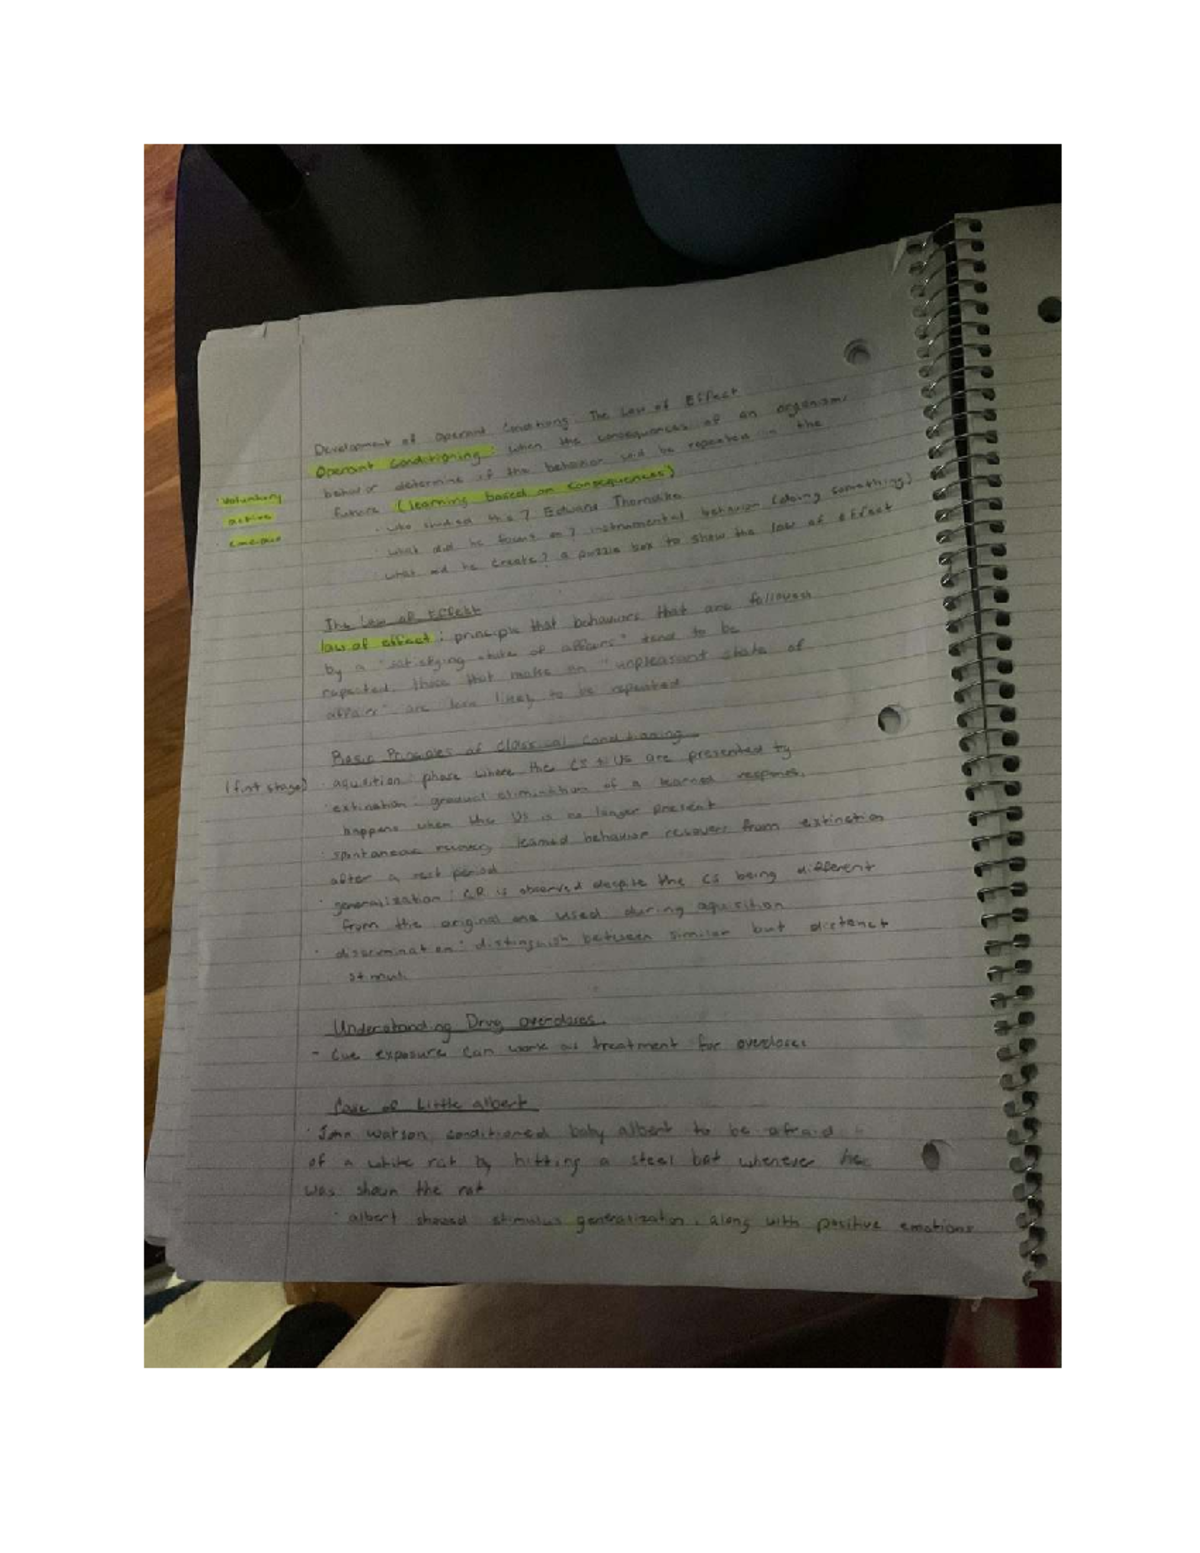 Development of Operant Conditioning: The Law of Effect
Operant Conditioning: when the consequences of an organisms
behavior determine if the behavior will be repeated in the
future (learning based on consequences)
· Voluntary
active
· who studied this? Edward Thorndike
· what did he focus on? instrumental behavior (doing something)
· what did he create? a puzzle box to show the law of effect
The Law of Effect
law of effect: principle that behaviors that are followed
by a "satisfying state of affairs" tend to be
repeated, those that make an "unpleasant state of
affairs" are less likely to be repeated
Basic Principles of Classical Conditioning
(first stage) · aqusition: phase where the CS + US are presented
· extination: gradual elimination of a learned response.
happens when the US is no longer present
· spontaneous recovery learned behavior recovers from extinction
after a rest period
· generalization: CR is observed despite the CS being different
from the original one used during aquisition
· discrimination: distinguish between similar but distenct
stimuli
Understanding Drug overdoses.
- Cue exposure can work as treatment for overdoses
Case of Little albert
· John Watson conditioned baby albert to be afraid
of a white rat by hitting a steel bat whenever he
was shown the rat
· albert showed stimulus generalization, along with positive emotions